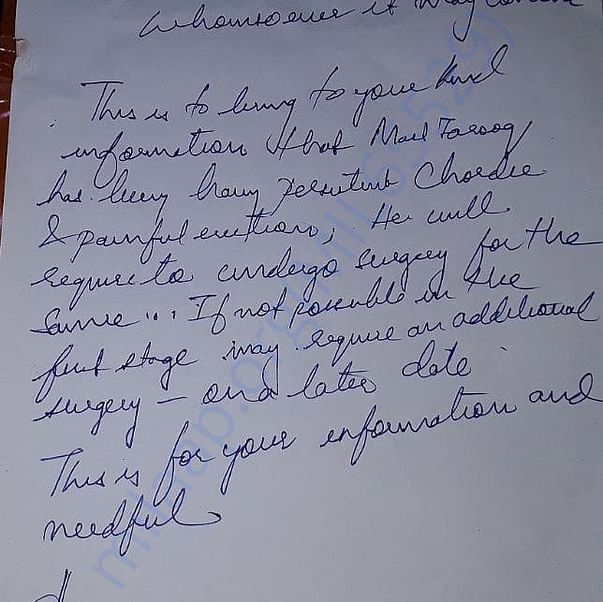 Whomsoever it may concern
This is to bring to your kind
information that Mohd Farooq
has being having persistent Chordee
& painful erection, He will
require to undergo surgery for the
same... If not possible in the
first stage may require an additional
surgery - on a later date
This is for your information and
needful
milaap.org